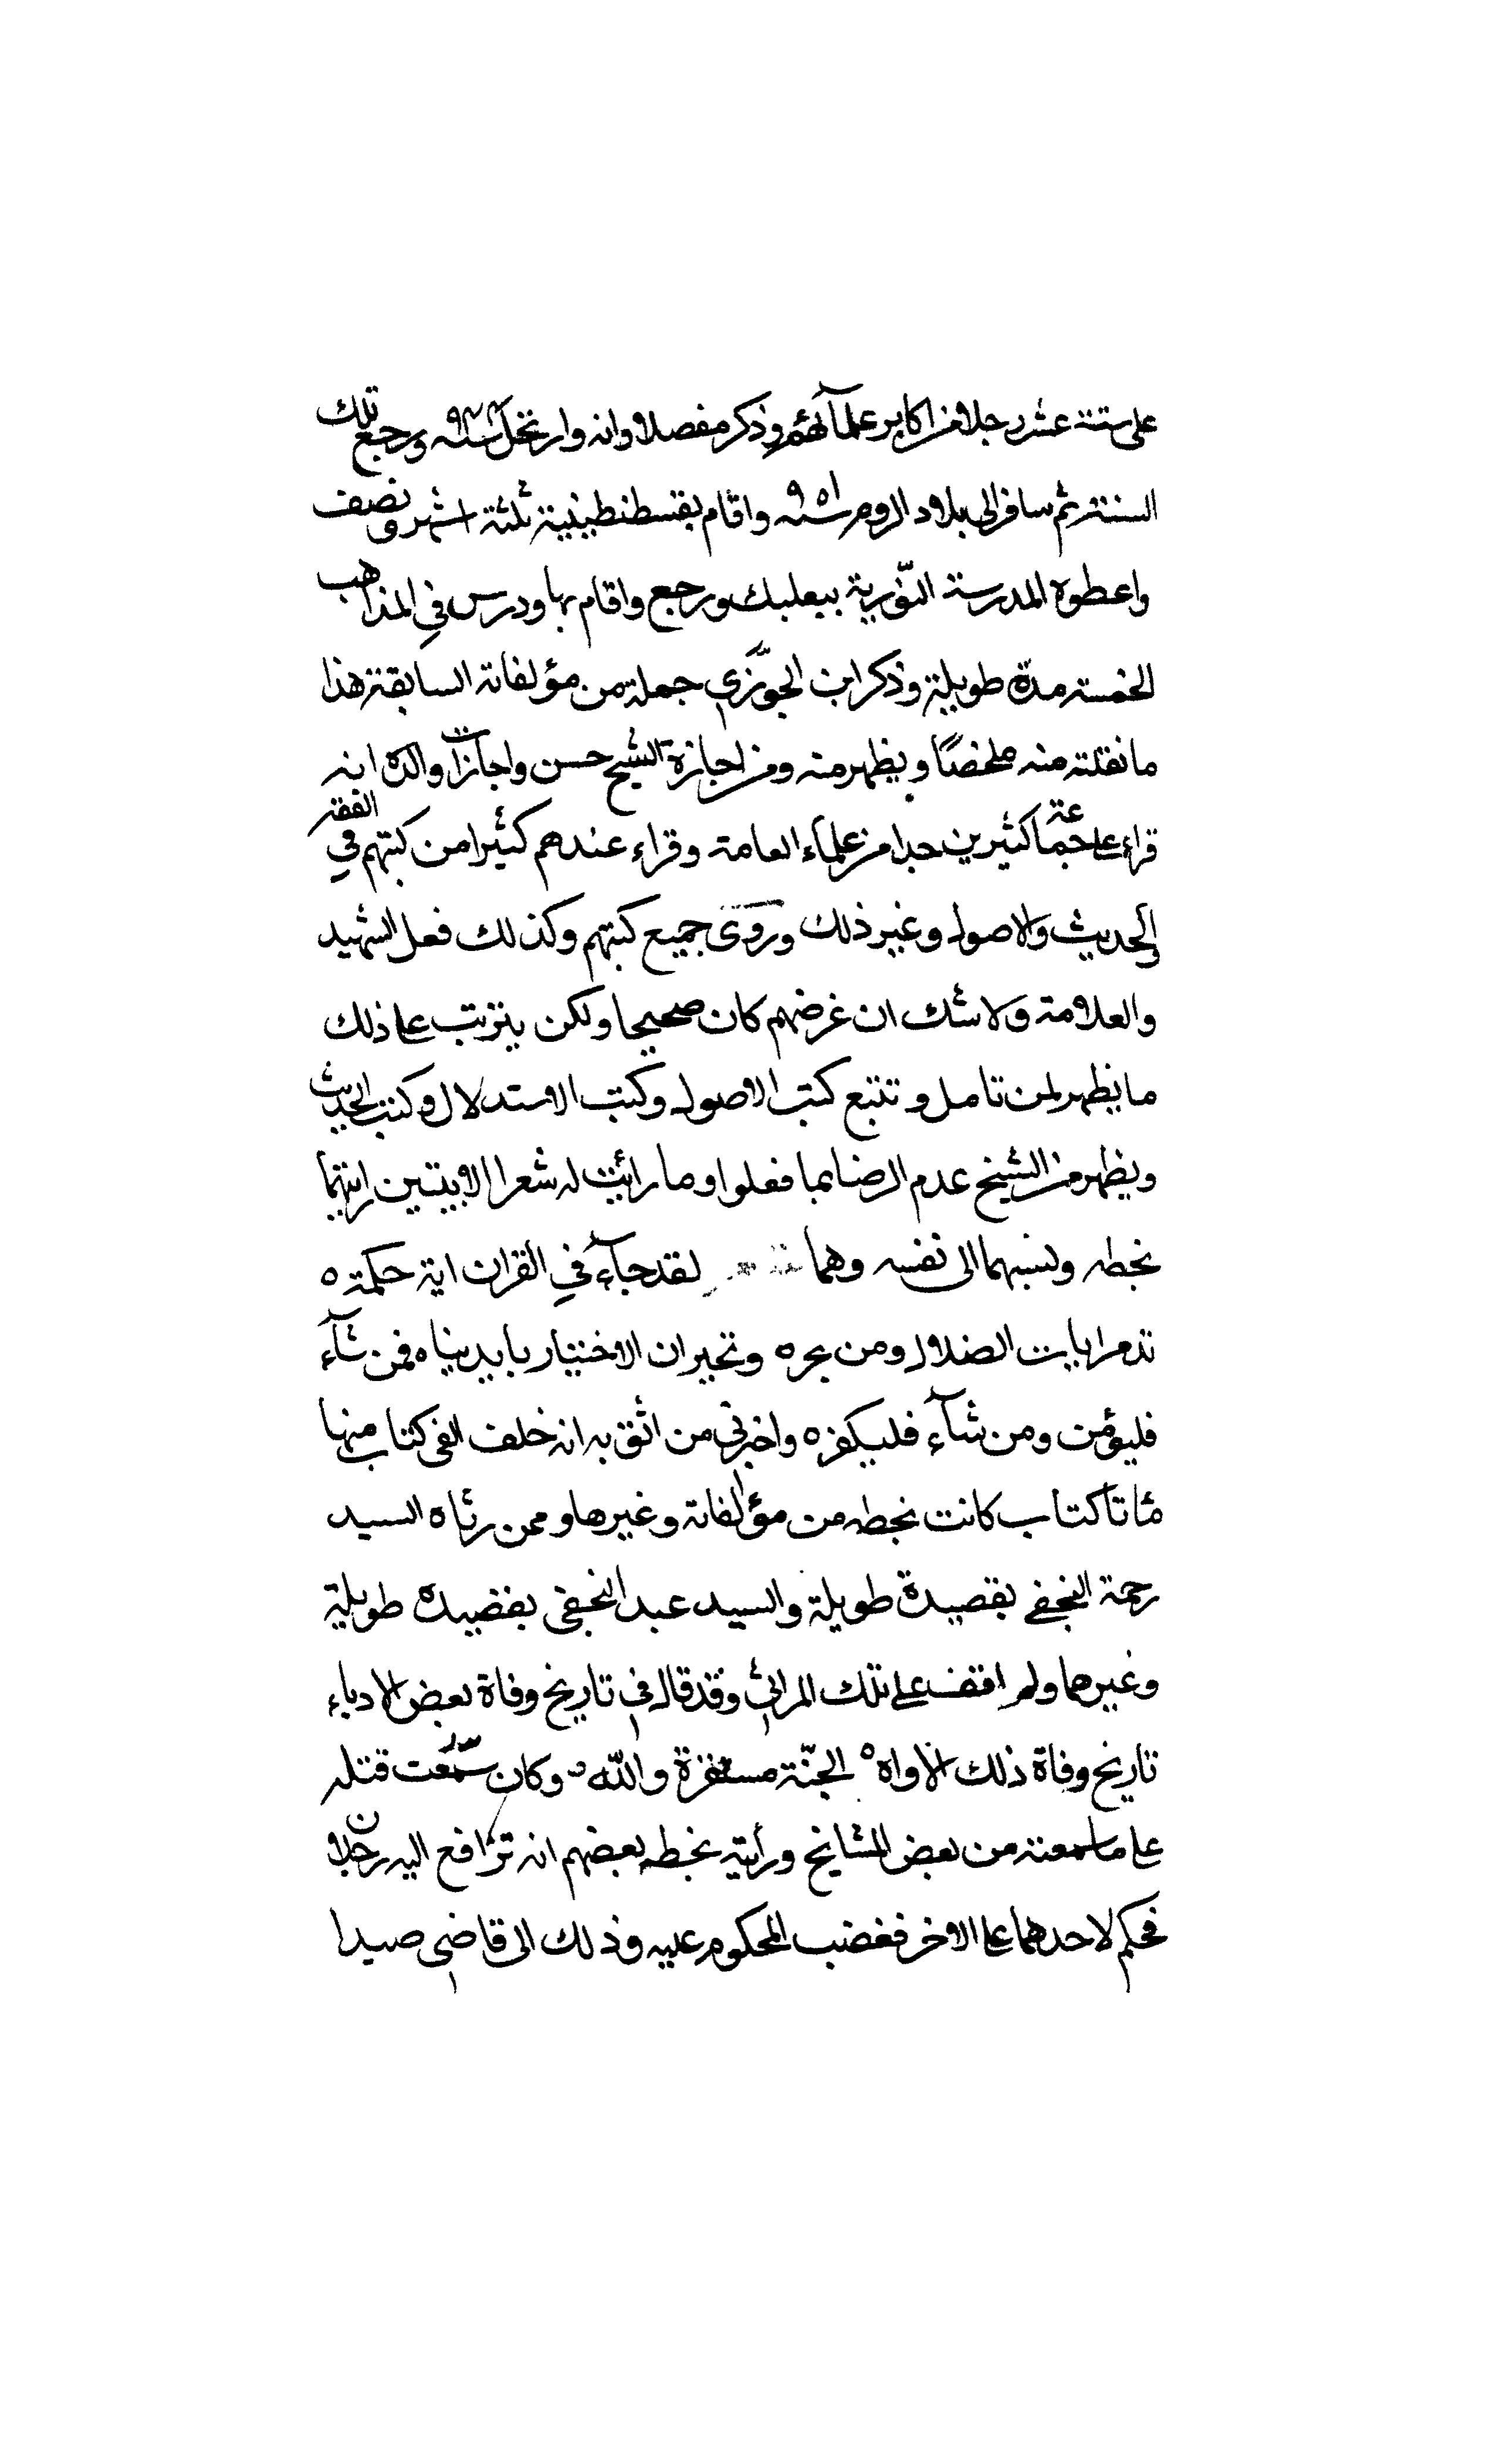 على ستة عشر رجلا من اكابر علمآئهم وذكر مفصلا وانه وارتحل سنه ٩٤٣ ورجع تلك
السنة ثم سافر الى بلاد الروم سنه ٩٥١ واقام بقسطنطينية ثلثة اشهر ونصف
واعطوه المدرسة النّورية ببعلبك ورجع واقام بها ودرس في المذاهب
الخمسة مدة طويلة وذكر ابن الجوّزي جملة من مؤلفاته السابقة هذا
ما نقلته منه ملخصًا ويظهر منه ومن اجازة الشيخ حسن واجازات والده انه
قراء على جماعة كثيرين جدا من علماء العامة وقراء عندهم كثيرا من كتبهم في الفقه
والحديث والاصول وغير ذلك وروى جميع كتبهم وكذلك فعل الشهيد
والعلامة ولا شك ان غرضهم كان صحيحا ولكن يترتب على ذلك
ما يظهر لمن تامل وتتبع كتب الاصول وكتب الاستدلال وكتب الحديث
ويظهر من الشيخ عدم الرضا بما فعلوا وما رائيت له شعرا الا بيتين رايتهما
بخطه ونسبهما الى نفسه وهما لقد جآء في القران اية حكمة ٥
تدمر ايات الضلال ومن يجره وتخبر ان الاختيار بايدينا ٥ فمن شآء
فليؤمن ومن شآء فليكفره واخبرني من اثق به انه خلف الفي كتاب منها
مأتا كتاب كانت بخطه من مؤلفاته وغيرها وممن رثاه السيد
رحمة النجفي بقصيدة طويلة والسيد عبد النجفي بقصيدة طويلة
وغيرهما ولم اقف على تلك المراثي وقد قال في تاريخ وفاة بعض الادباء
تاريخ وفاة ذلك الاواه ٥ الجنّة مستقرة والله وكان سبب قتله
على ما سمعته من بعض المشايخ ورأيته بخط بعضهم انه ترافع اليه رجلان
فحكم لاحدهما على الاخر فغضب المحكوم عليه وذلك الى قاضي صيدا